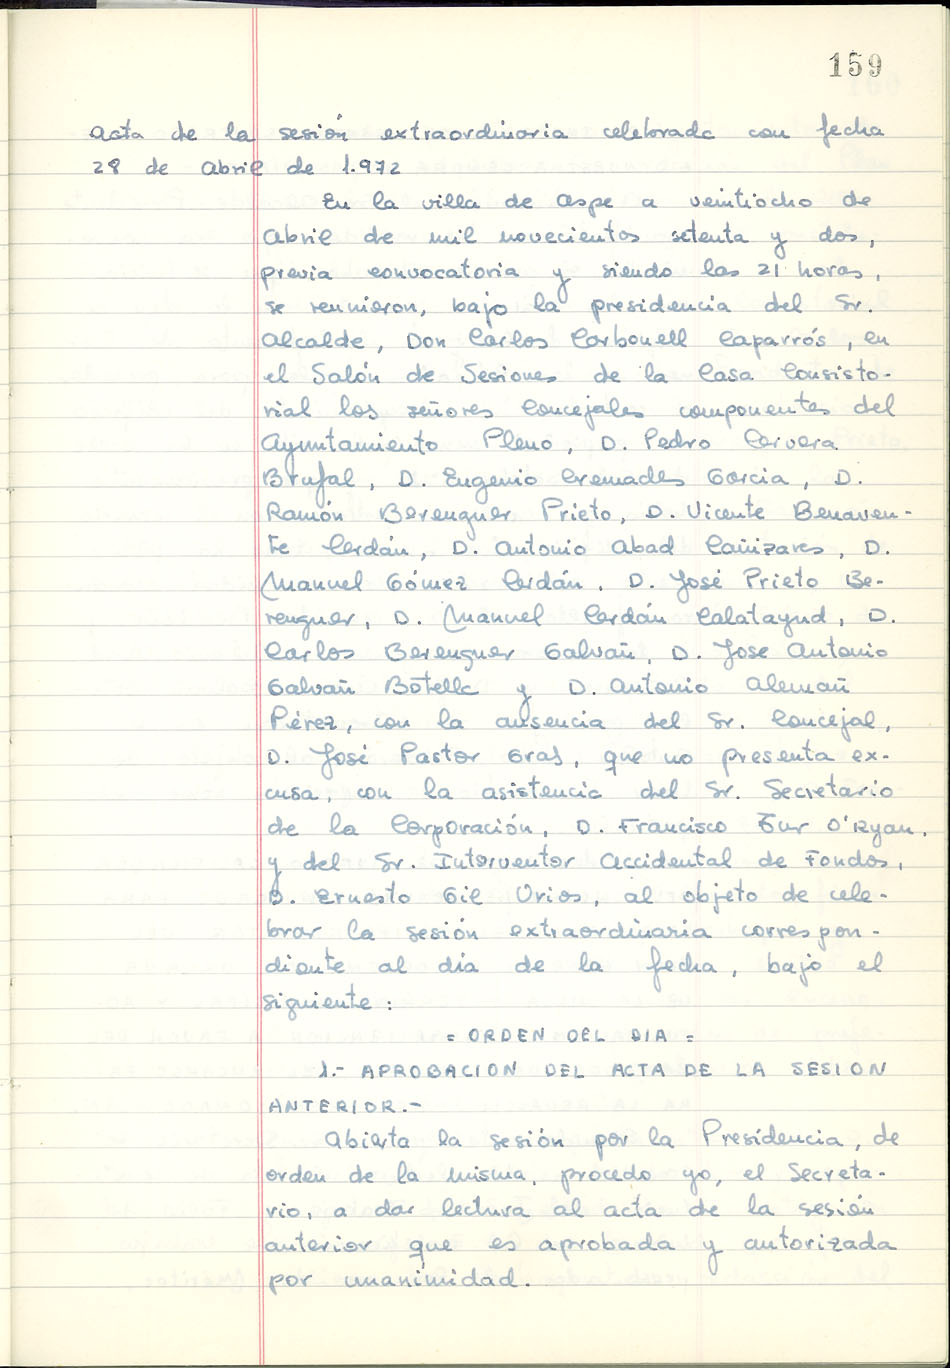 159
Acta de la sesión extraordinaria celebrada con fecha
28 de Abril de 1.972
En la villa de Aspe a veintiocho de
Abril de mil novecientos setenta y dos,
previa convocatoria y siendo las 21 horas,
se reunieron, bajo la presidencia del Sr.
Alcalde, Don Carlos Carbonell Caparrós, en
el Salón de Sesiones de la Casa Consisto-
rial los señores Concejales componentes del
Ayuntamiento Pleno, D. Pedro Cervera
Brufal, D. Eugenio Cremades Garcia, D.
Ramón Berenguer Prieto, D. Vicente Benaven-
te Cerdán, D. Antonio Abad Cañizares, D.
Manuel Gómez Cerdán, D. José Prieto Be-
renguer, D. Manuel Cerdán Calatayud, D.
Carlos Berenguer Galvañ, D. Jose Antonio
Galvañ Botella y D. Antonio Alemañ
Pérez, con la ausencia del Sr. Concejal,
D. José Pastor Gras, que no presenta ex-
cusa, con la asistencia del Sr. Secretario
de la Corporación, D. Francisco Tur O'Ryan,
y del Sr. Interventor Accidental de Fondos,
D. Ernesto Gil Urios, al objeto de cele-
brar la sesión extraordinaria correspon-
diente al día de la fecha, bajo el
siguiente:
= ORDEN DEL DIA =
1.- APROBACION DEL ACTA DE LA SESION
ANTERIOR.-
Abierta la sesión por la Presidencia, de
orden de la misma, procedo yo, el Secreta-
rio, a dar lectura al acta de la sesión
anterior que es aprobada y autorizada
por unanimidad.